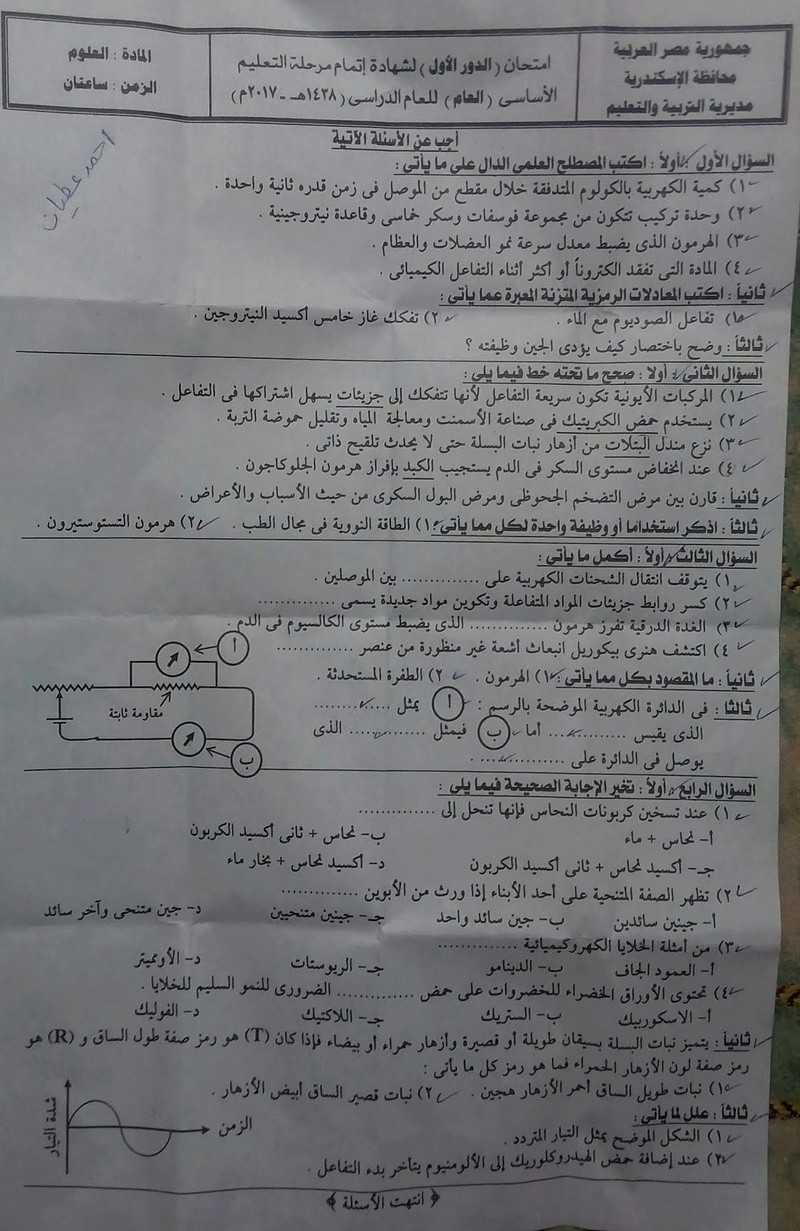 جمهورية مصر العربية
محافظة الإسكندرية
مديرية التربية والتعليم
امتحان (الدور الأول) لشهادة إتمام مرحلة التعليم
الأساسى (العام) للعام الدراسى (١٤٣٨هـ - ٢٠١٧م)
المادة : العلوم
الزمن : ساعتان
احمد عطيات
أجب عن الأسئلة الآتية
السؤال الأول : أولاً : اكتب المصطلح العلمى الدال على ما يأتى :
١) كمية الكهربية بالكولوم المتدفقة خلال مقطع من الموصل فى زمن قدره ثانية واحدة .
٢) وحدة تركيب تتكون من مجموعة فوسفات وسكر خماسى وقاعدة نيتروجينية .
٣) الهرمون الذى يضبط معدل سرعة نمو العضلات والعظام .
٤) المادة التى تفقد الكتروناً أو أكثر أثناء التفاعل الكيميائى .
ثانياً : اكتب المعادلات الرمزية المتزنة المعبرة عما يأتى :
١) تفاعل الصوديوم مع الماء . ٢) تفكك غاز خامس أكسيد النيتروجين .
ثالثاً : وضح باختصار كيف يؤدى الجين وظيفته ؟
السؤال الثانى : أولا : صحح ما تحته خط فيما يلى :
١) المركبات الأيونية تكون سريعة التفاعل لأنها تتفكك إلى جزيئات يسهل اشتراكها فى التفاعل .
٢) يستخدم حمض الكبريتيك فى صناعة الأسمنت ومعالجة المياه وتقليل حموضة التربة .
٣) نزع مندل البتلات من أزهار نبات البسلة حتى لا يحدث تلقيح ذاتى .
٤) عند انخفاض مستوى السكر فى الدم يستجيب الكبد بإفراز هرمون الجلوكاجون .
ثانياً : قارن بين مرض التضخم الجحوظى ومرض البول السكرى من حيث الأسباب والأعراض .
ثالثاً : اذكر استخداما أو وظيفة واحدة لكل مما يأتى : ١) الطاقة النووية فى مجال الطب . ٢) هرمون التستوستيرون .
السؤال الثالث : أولاً : أكمل ما يأتى :
١) يتوقف انتقال الشحنات الكهربية على ............. بين الموصلين .
٢) كسر روابط جزيئات المواد المتفاعلة وتكوين مواد جديدة يسمى .............
٣) الغدة الدرقية تفرز هرمون ............. الذى يضبط مستوى الكالسيوم فى الدم .
٤) اكتشف هنرى بيكوريل انبعاث أشعة غير منظورة من عنصر .............
ثانياً : ما المقصود بكل مما يأتى : ١) الهرمون . ٢) الطفرة المستحدثة .
ثالثاً : فى الدائرة الكهربية الموضحة بالرسم : أ يمثل .............
الذى يقيس ............. أما ب فيمثل ............. الذى
يوصل فى الدائرة على ............. .
أ
مقاومة ثابتة
ب
السؤال الرابع : أولاً : تخير الإجابة الصحيحة فيما يلى :
١) عند تسخين كربونات النحاس فإنها تنحل إلى .............
أ- نحاس + ماء ب- نحاس + ثانى أكسيد الكربون
جـ- أكسيد نحاس + ثانى أكسيد الكربون د- أكسيد نحاس + بخار ماء
٢) تظهر الصفة المتنحية على أحد الأبناء إذا ورث من الأبوين .............
أ- جينين سائدين ب- جين سائد واحد جـ- جينين متنحيين د- جين متنحى وآخر سائد
٣) من أمثلة الخلايا الكهروكيميائية .............
أ- العمود الجاف ب- الدينامو جـ- الريوستات د- الأوميتر
٤) تحتوى الأوراق الخضراء للخضروات على حمض ............. الضرورى للنمو السليم للخلايا .
أ- الاسكوربيك ب- الستريك جـ- اللاكتيك د- الفوليك
ثانياً : يتميز نبات البسلة بسيقان طويلة أو قصيرة وأزهار حمراء أو بيضاء فإذا كان (T) هو رمز صفة طول الساق و (R) هو
رمز صفة لون الأزهار الحمراء فما هو رمز كل ما يأتى :
١) نبات طويل الساق أحمر الأزهار هجين . ٢) نبات قصير الساق أبيض الأزهار .
ثالثاً : علل لما يأتى :
١) الشكل الموضح يمثل التيار المتردد .
٢) عند إضافة حمض الهيدروكلوريك إلى الألومنيوم يتأخر بدء التفاعل .
شدة التيار
الزمن
﴿ انتهت الأسئلة ﴾